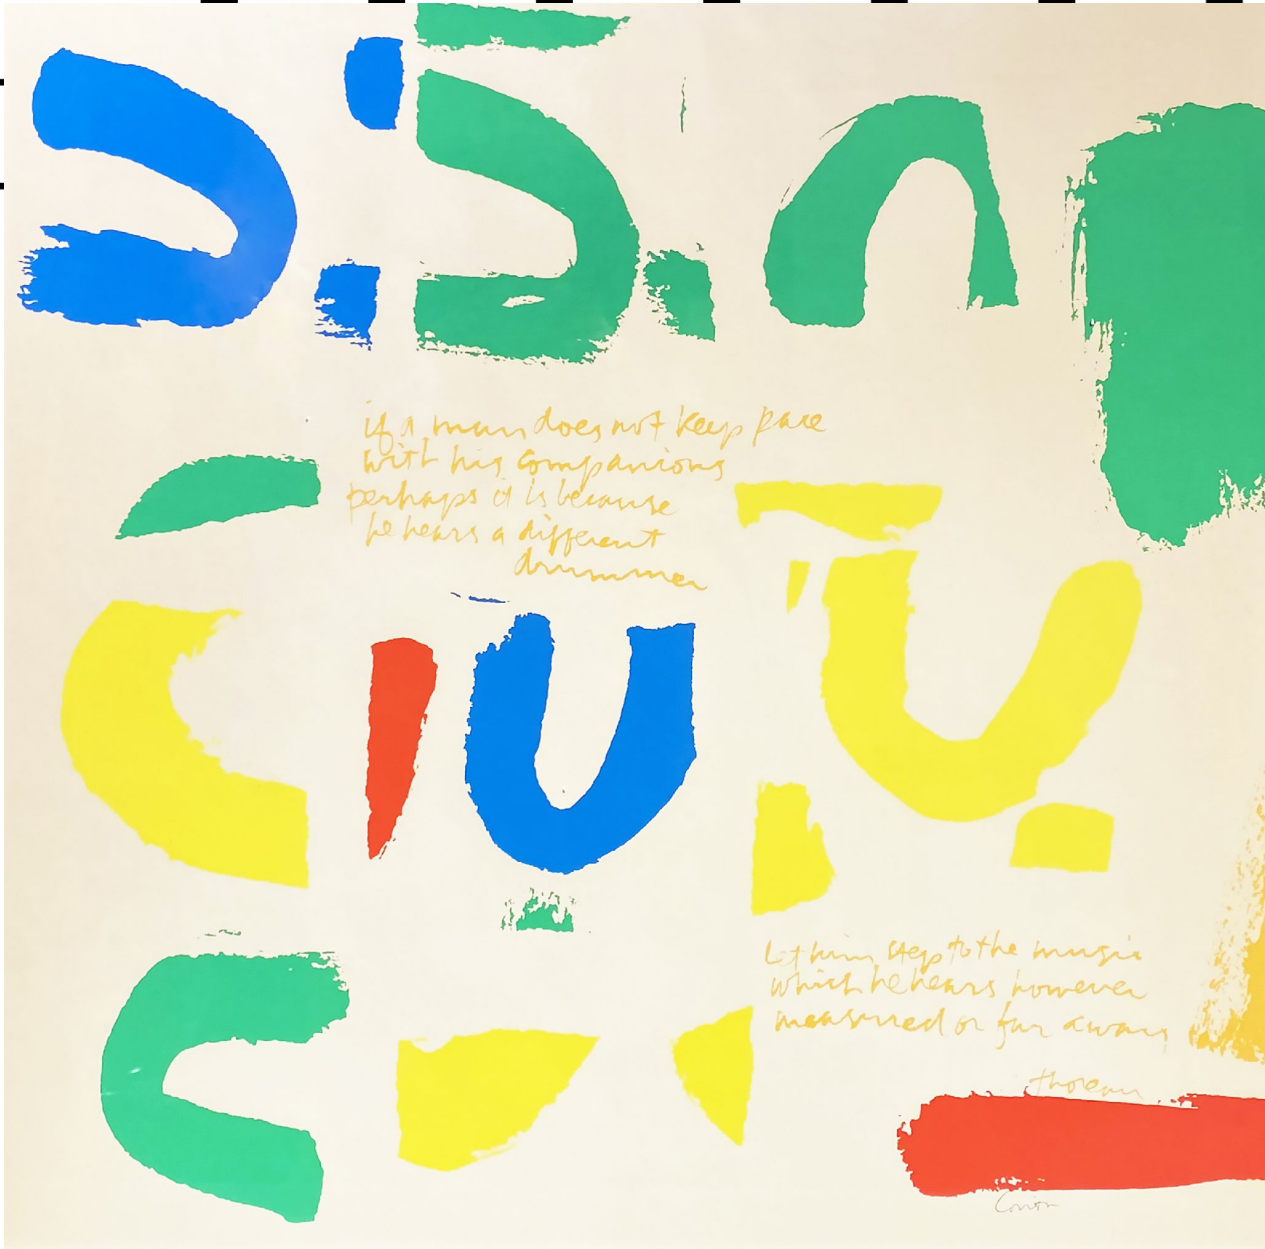 if a man does not keep pace
with his companions
perhaps it is because
he hears a different
drummer
Let him step to the music
which he hears however
measured or far away
thoreau